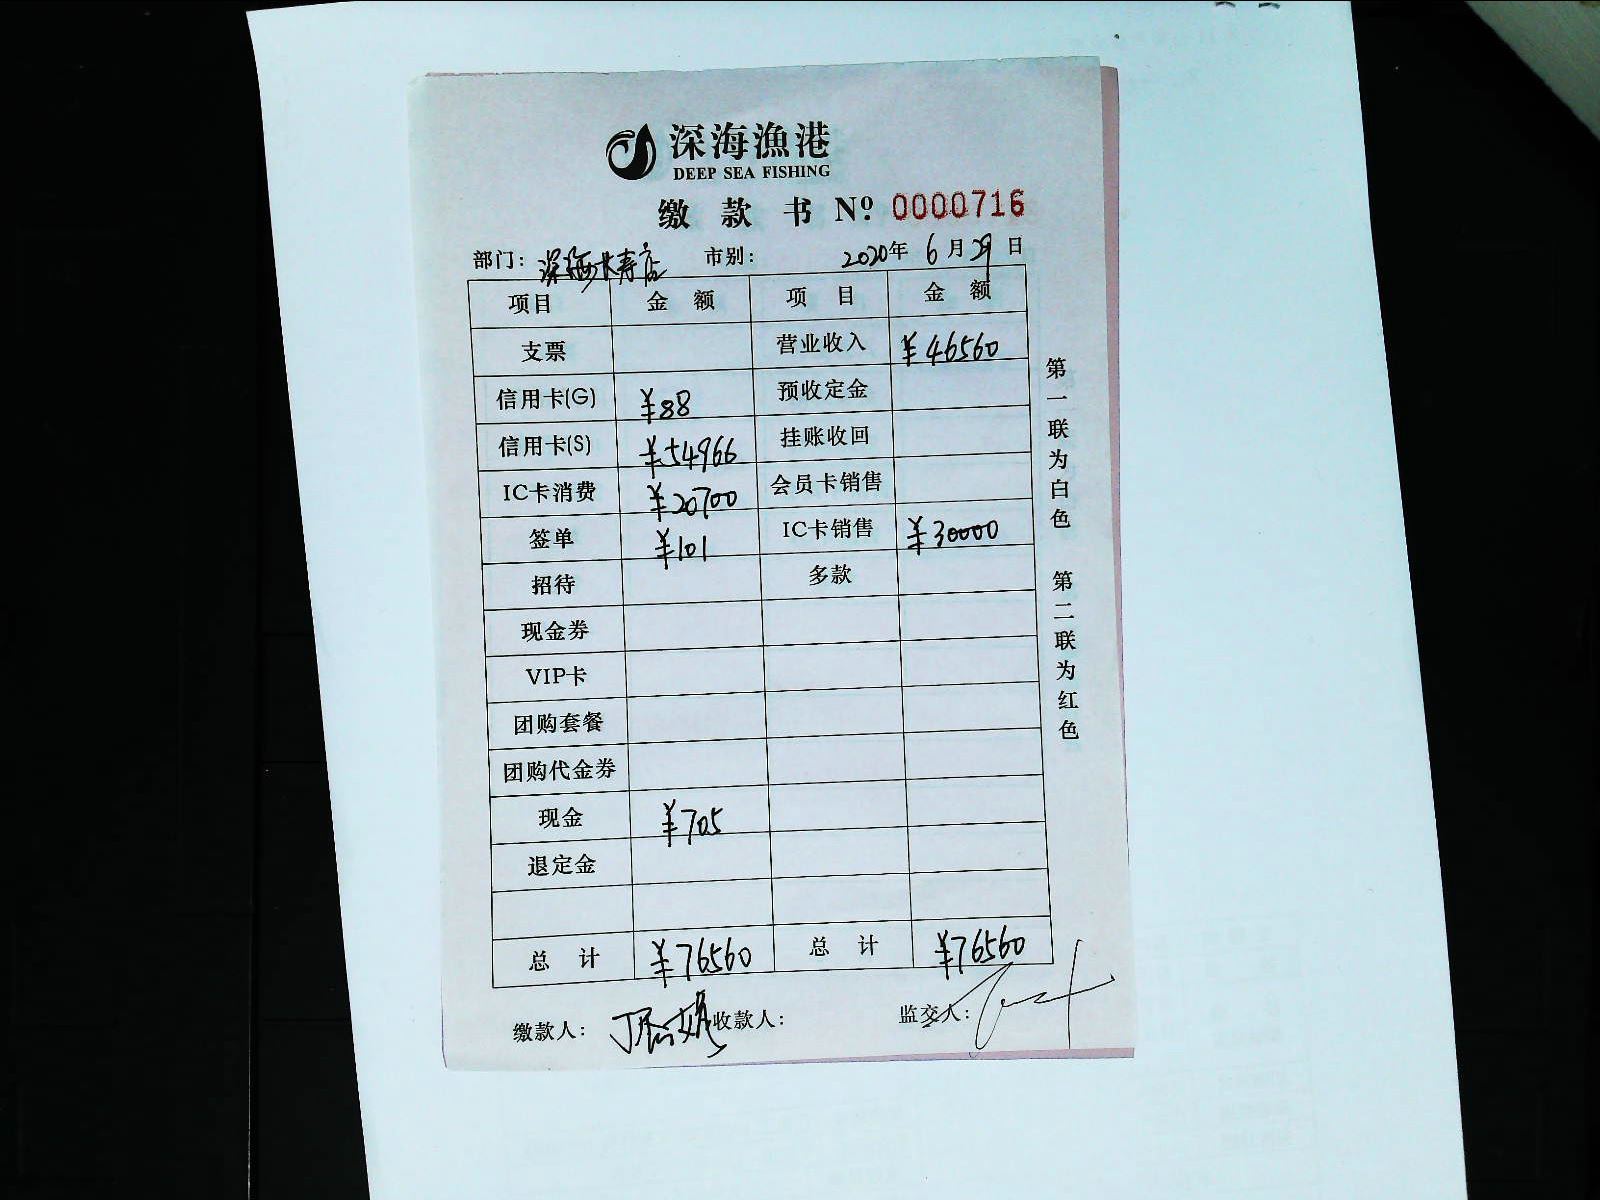 深海漁港
DEEP SEA FISHING
缴 款 书 Nº 0000716
部门： 深海长寿店 市别： 2020年 6 月 29 日
项目 金 额 项 目 金 额
支票 营业收入 ¥46560
信用卡(G) ¥88 预收定金
信用卡(S) ¥54966 挂账收回
IC卡消费 ¥20700 会员卡销售
签单 ¥101 IC卡销售 ¥30000
招待 多款
现金券
VIP卡
团购套餐
团购代金券
现金 ¥705
退定金
总 计 ¥76560 总 计 ¥76560
缴款人： 收款人： 监交人：
第一联为白色 第二联为红色